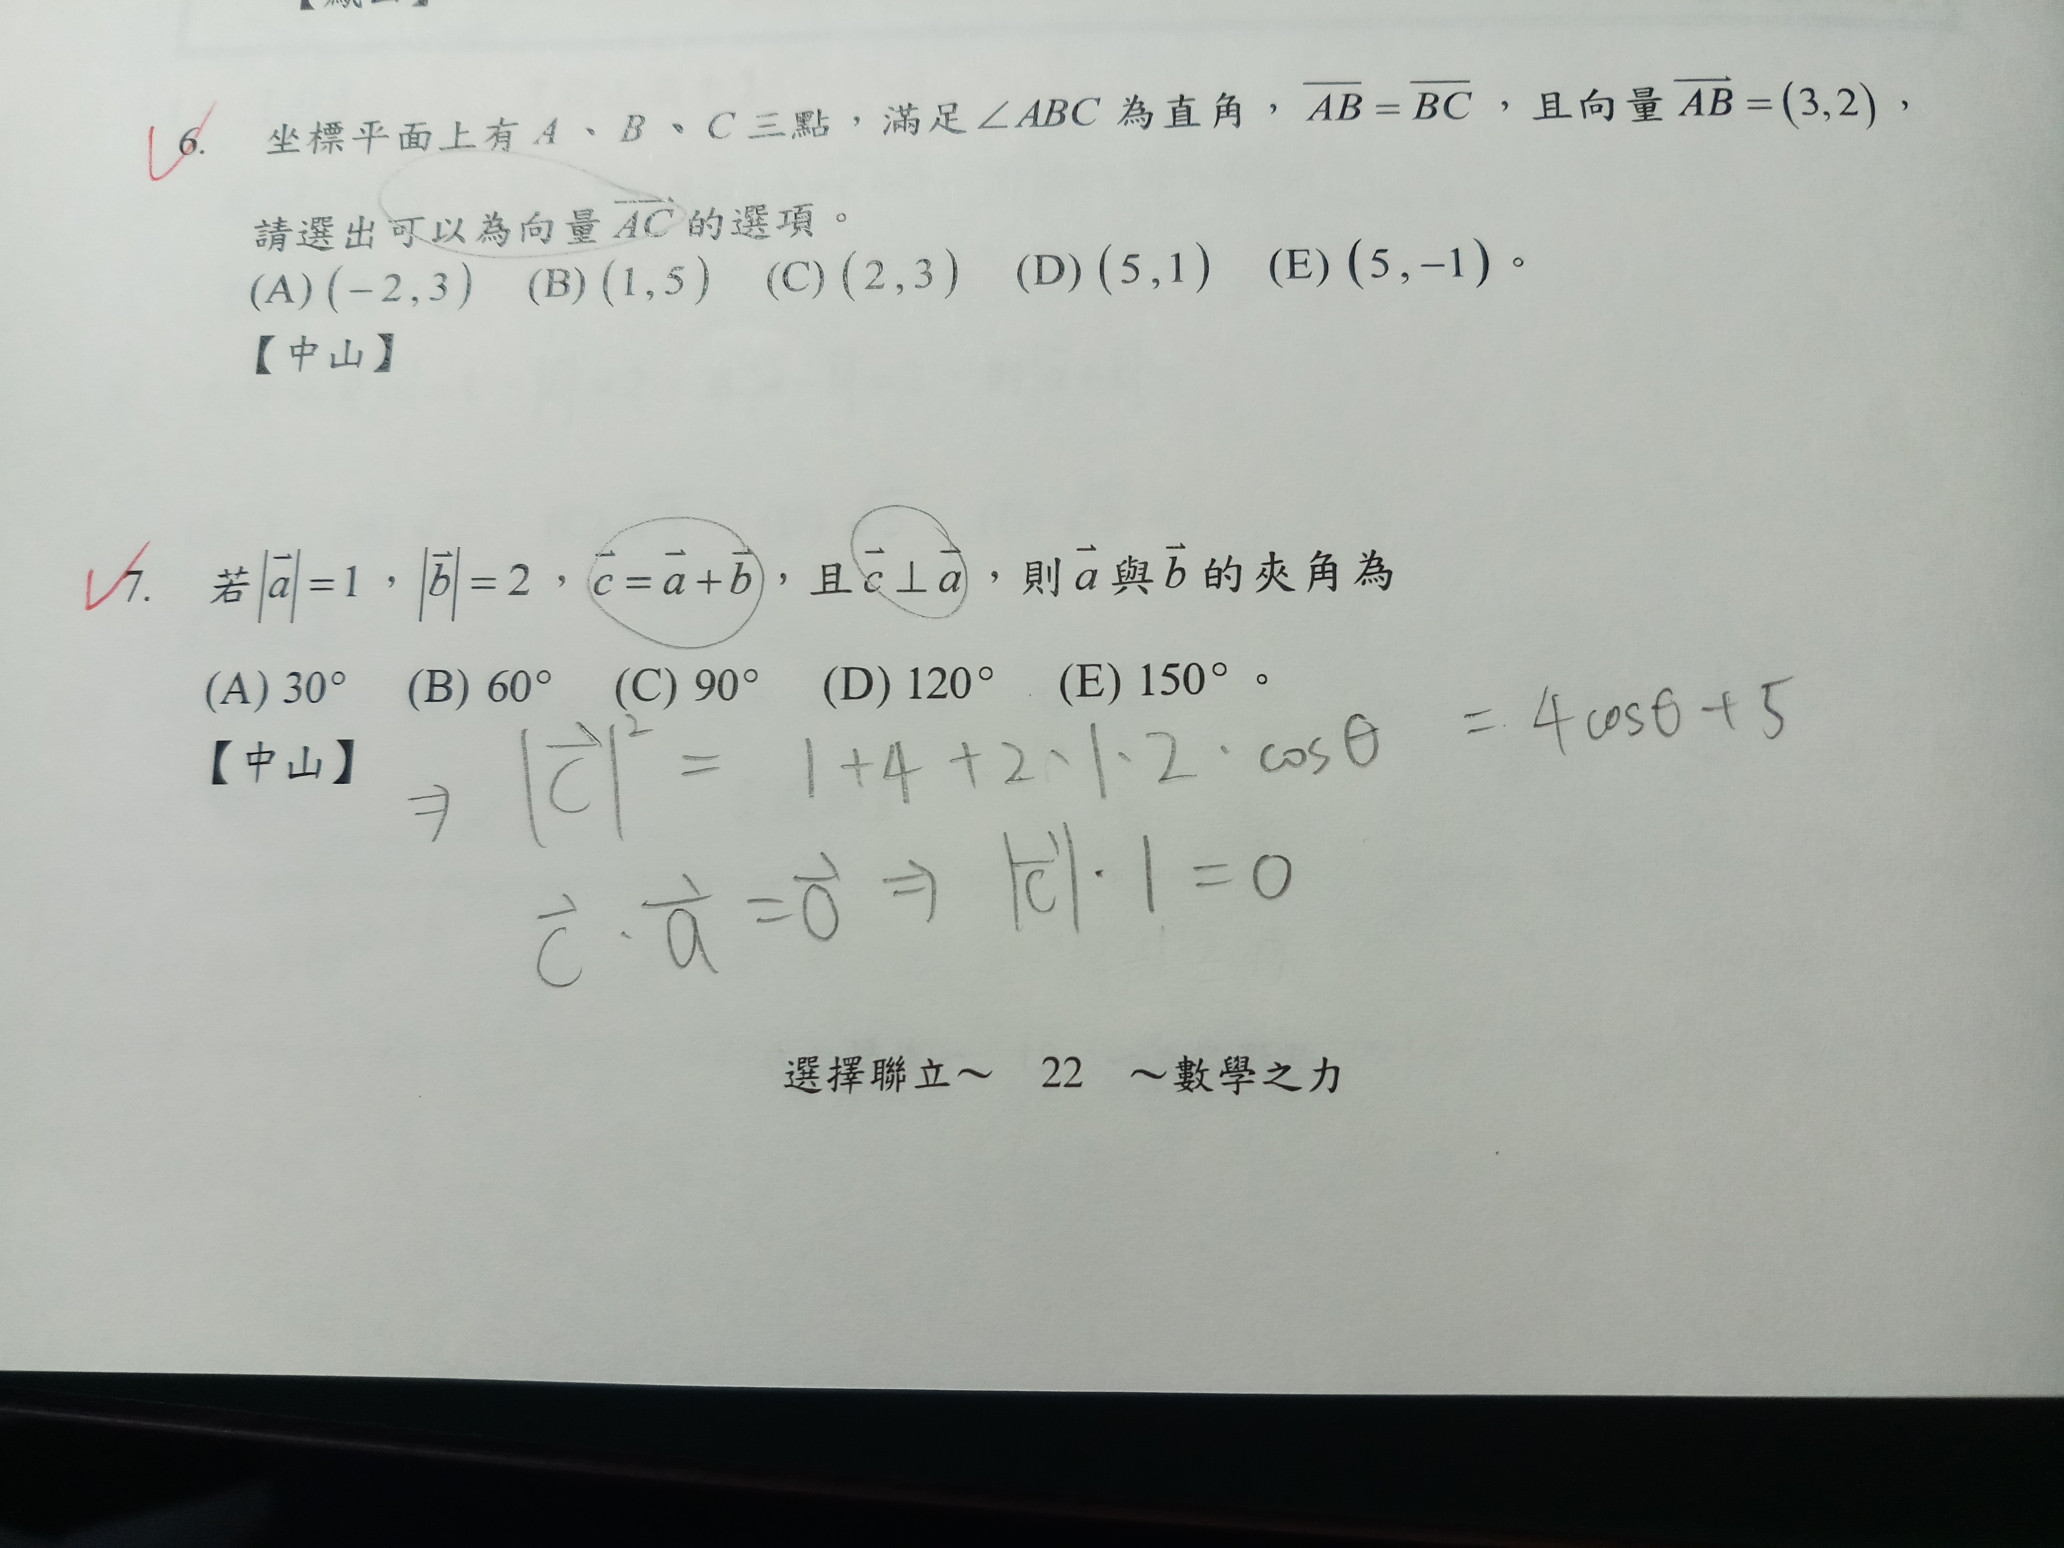 6. 坐標平面上有 A、B、C 三點，滿足∠ABC 為直角，\overline{AB} = \overline{BC}，且向量 \overrightarrow{AB} = (3,2)，
請選出可以為向量 \overrightarrow{AC} 的選項。
(A) (−2,3) (B) (1,5) (C) (2,3) (D) (5,1) (E) (5,−1)。
【中山】
7. 若 |\vec{a}| = 1，|\vec{b}| = 2，\vec{c} = \vec{a} + \vec{b}，且 \vec{c} ⊥ \vec{a}，則 \vec{a} 與 \vec{b} 的夾角為
(A) 30° (B) 60° (C) 90° (D) 120° (E) 150°。
【中山】
⇒ |\vec{c}|² = 1+4+2·1·2·cosθ = 4cosθ+5
\vec{c}·\vec{a} = \vec{0} ⇒ |\vec{c}|·1 = 0
選擇聯立～ 22 ～數學之力